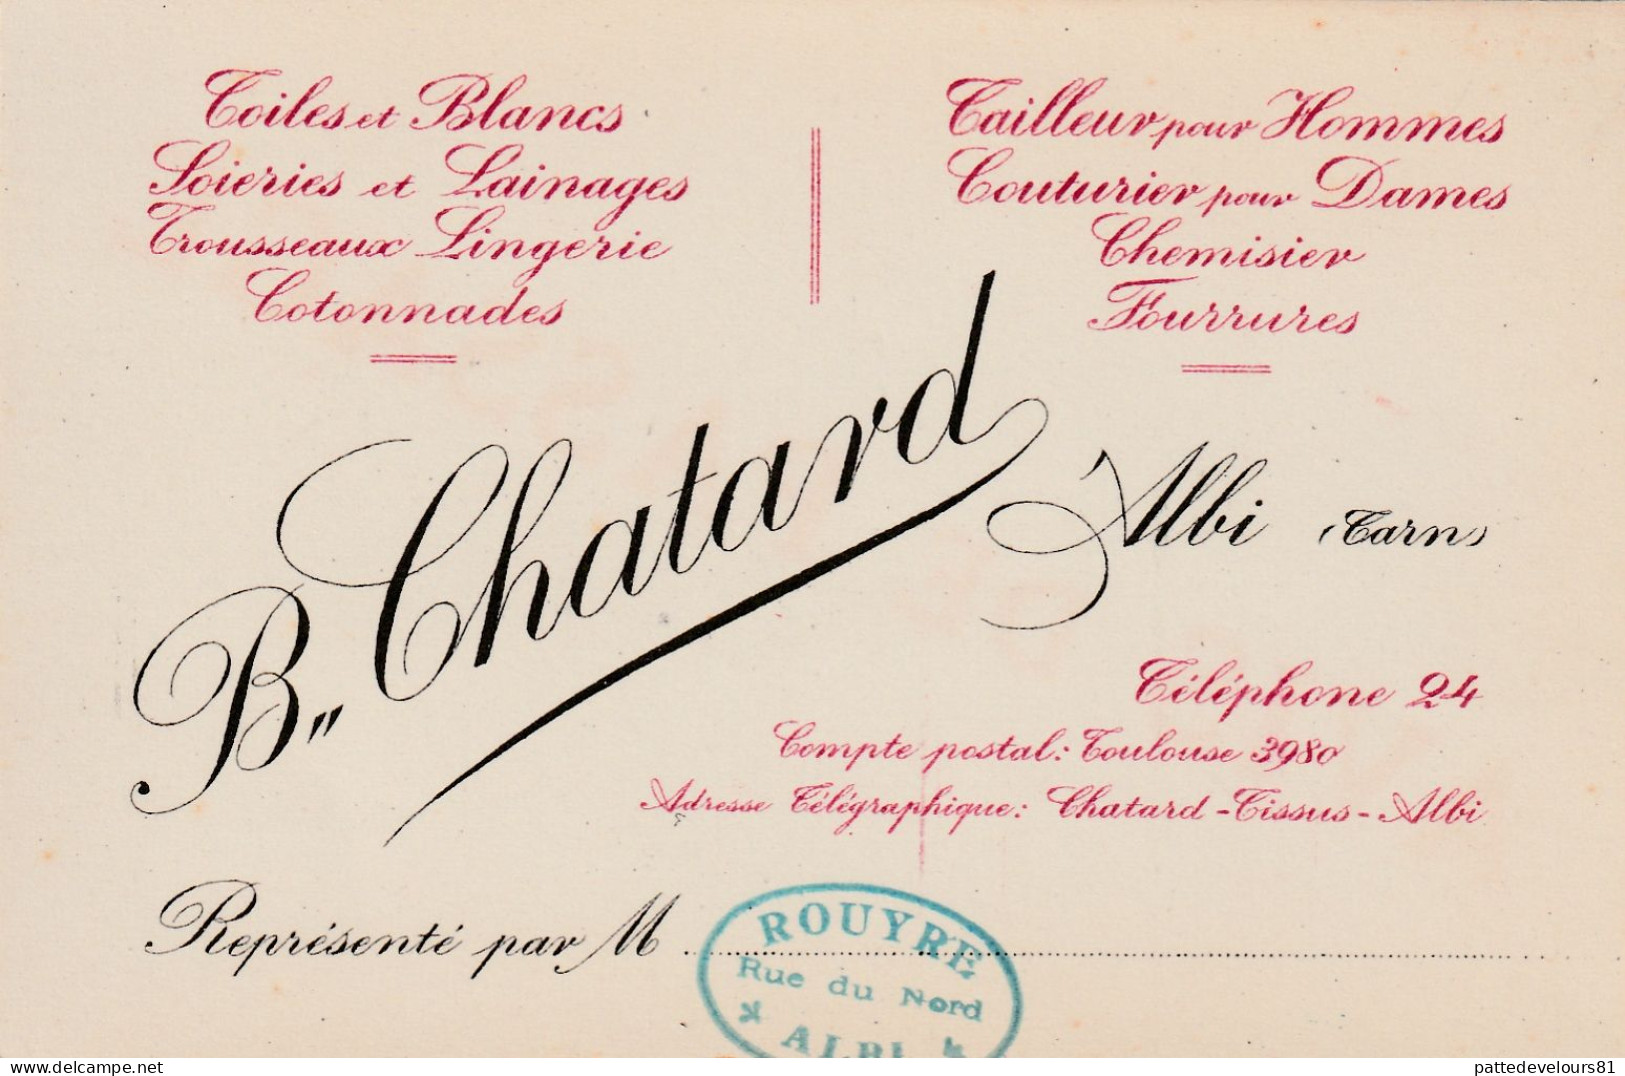 Toiles et Blancs
Soieries et Lainages
Trousseaux Lingerie
Cotonnades
Tailleur pour Hommes
Couturier pour Dames
Chemisier
Fourrures
B" Chatard
Albi (Tarn)
Téléphone 24
Compte postal: Toulouse 3980
Adresse Télégraphique: Chatard-Tissus-Albi
Représenté par M
ROUYRE
Rue du Nord
ALBI
delcampe.net
pattedevelours81